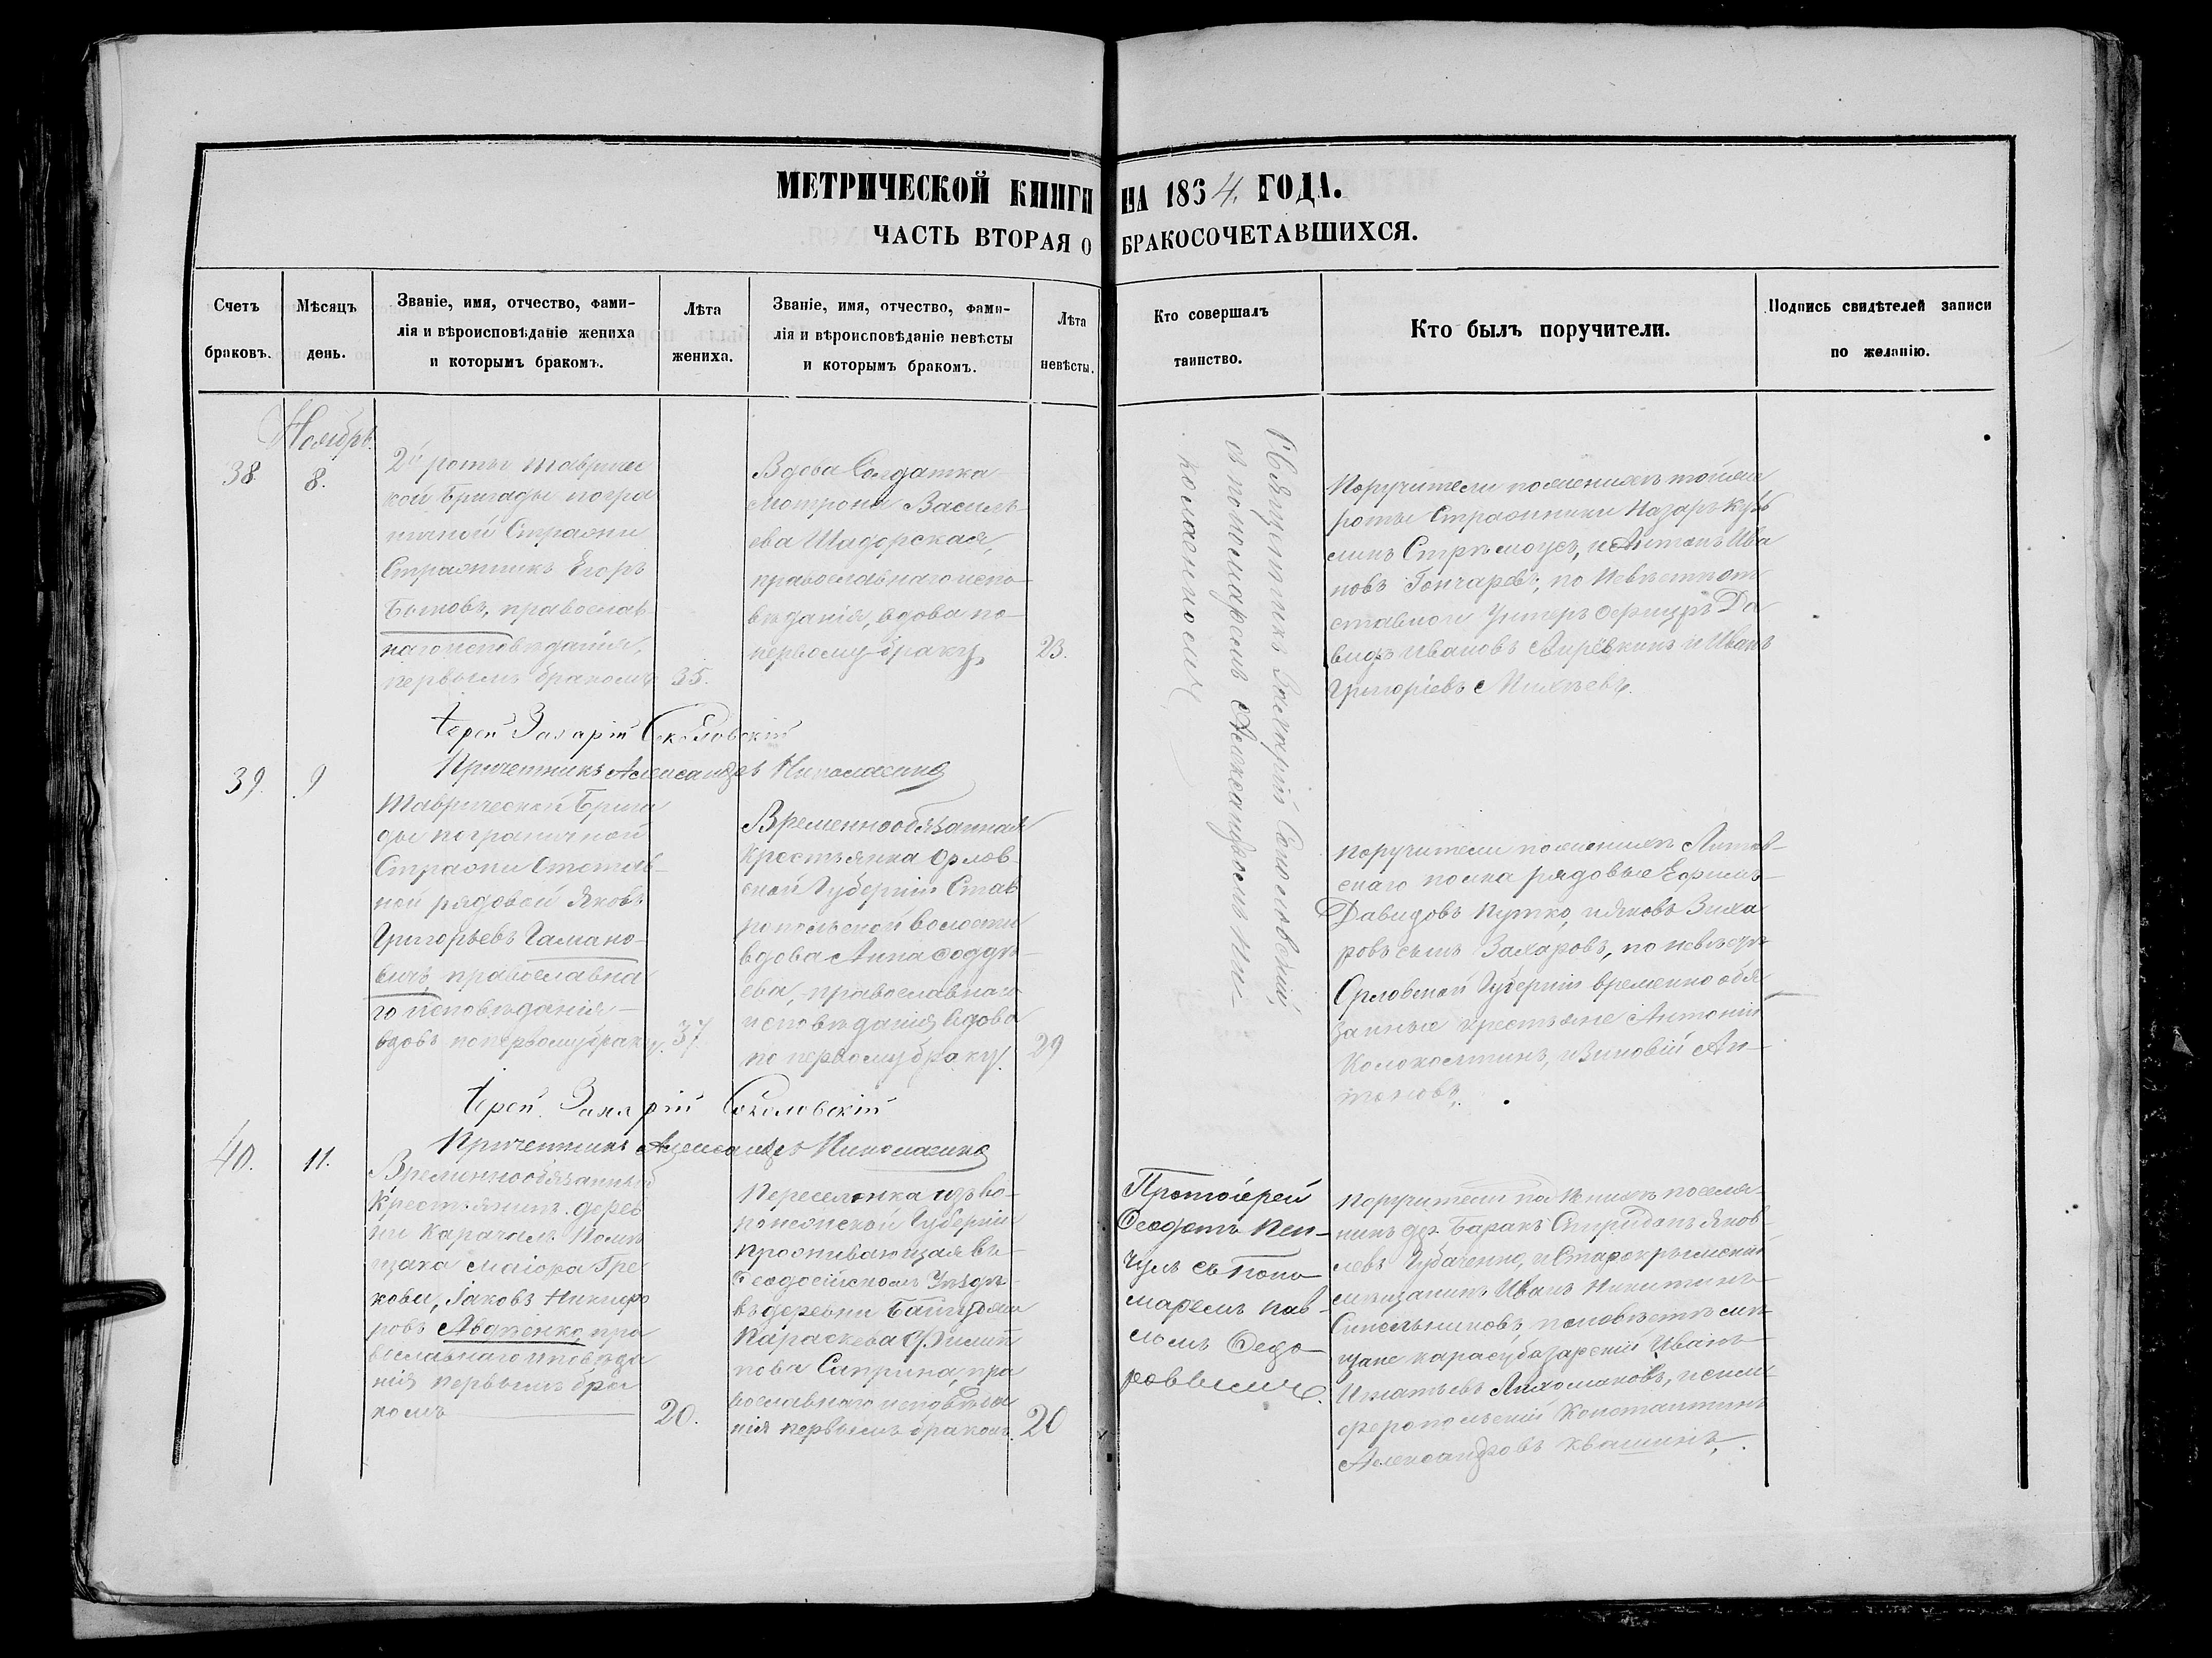 МЕТРИЧЕСКОЙ КНИГИ НА 1864 ГОДА.
ЧАСТЬ ВТОРАЯ О БРАКОСОЧЕТАВШИХСЯ.
Счетъ
браковъ.
Мѣсяцъ
день.
Званіе, имя, отчество, фами-
лія и вѣроисповѣданіе жениха
и которымъ бракомъ.
Лѣта
жениха.
Званіе, имя, отчество, фами-
лія и вѣроисповѣданіе невѣсты
и которымъ бракомъ.
Лѣта
невѣсты.
Кто совершалъ
таинство.
Кто былъ поручители.
Подпись свидѣтелей записи
по желанію.
Ноябрь
38
8.
2й роты Тавричес
кой Бригады погра
ничной Стражи
Стражникъ Егоръ
Быковъ, православ
наго исповѣданія,
первымъ бракомъ
35.
Вдова Солдатка
Мотрона Василь-
ева Шадорская,
православнаго испо-
вѣданія, вдова по-
первому браку
23.
Священникъ Захарій Соколовскій,
съ пономаремъ Александромъ Ни-
колаенкомъ
Поручители по женихѣ тойже
роты Стражники Назаръ Кузь
минъ и Антонъ Ива
новъ Гончаровъ; по невѣстѣ от
ставной Унтеръ Офицеръ Да
видъ Ивановъ и Иванъ
Григоріевъ Михѣевъ.
Іерей Захарій Соколовскій
Причетникъ Александръ Николаенко
39.
9
Таврической Брига
ды пограничной
Стражи Отстав-
ной рядовой Яковъ
Григорьевъ Гамано-
вичъ, православна
го исповѣданія
вдовъ по первому браку.
37.
Временнообязанная
крестьянка Орлов-
ской Губерніи Став
ропольской волости
вдова Анна Фаддѣ-
ева, православнаго
исповѣданія вдова
по первому браку.
29
Поручители по женихѣ Литов-
скаго полка рядовые Ефимъ
Давидовъ Путко, и Яковъ Заха
ровъ сынъ Захаровъ, по невѣстѣ
Орловской Губерніи временно обя
занные крестьяне Антоній
Колоколтинъ, и Зиновій Ан-
тоновъ.
Іерей Захарій Соколовскій
Причетникъ Александръ Николаенко
40.
11.
Временнообязанный
крестьянинъ дерев
ни Карачалъ Помѣ
щика Маіора Гре
кова, Іаковъ Никифо
ровъ Авдѣенко, пра
вославнаго исповѣда
нія первымъ бра
комъ
20.
Переселенка изъ Во-
ронежской Губерніи
проживающая въ
Ѳеодосійскомъ Уѣздѣ
въ деревни
Параскева Филип
пова Саприна, пра
вославнаго исповѣда
нія первымъ бракомъ.
20
Протоіерей
Ѳеодотъ Пен-
чулъ съ поно
маремъ Пав-
ломъ Ѳедо-
ровичемъ.
Поручители по женихѣ поселя-
нинъ дер. Баракъ Спиридонъ Яков-
левъ Губаченко, и Старокрымскій
мѣщанинъ Иванъ Никитинъ
Синельниковъ, по невѣстѣ мѣ
щане карасубазарскій Иванъ
Игнатьевъ Лихомановъ, и сим-
феропольскій Константинъ
Александровъ Квашинъ.